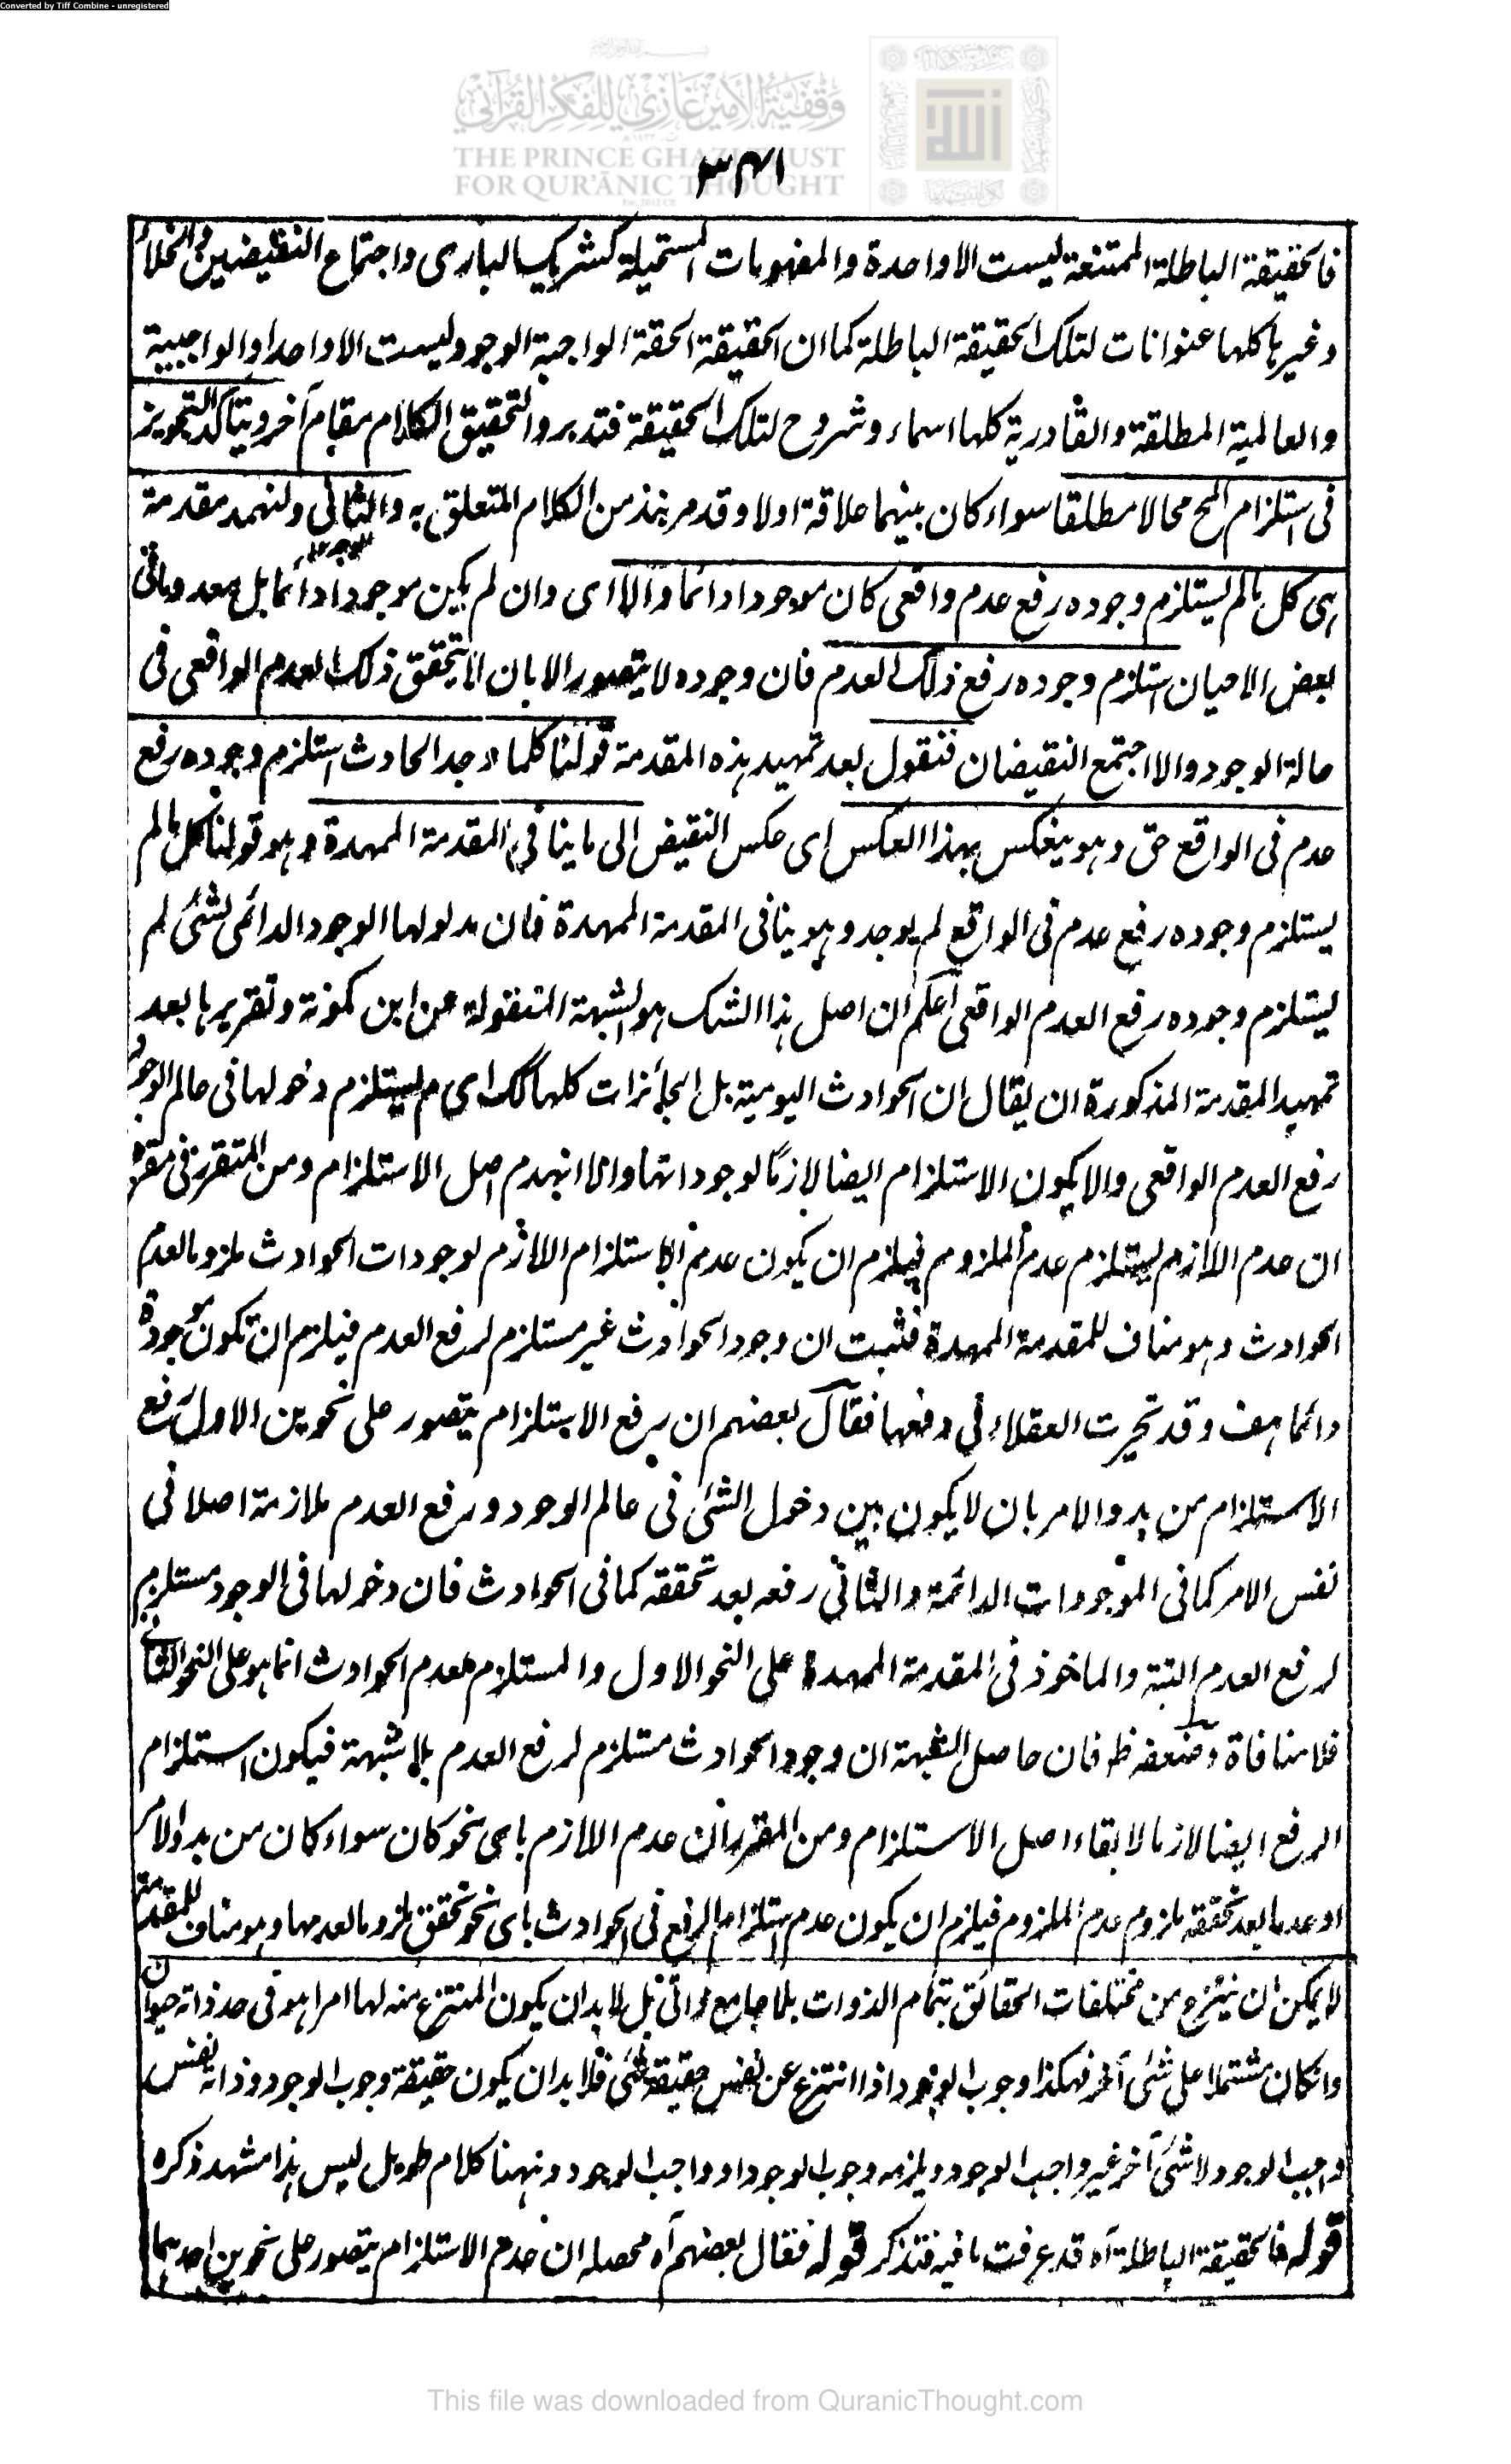 Converted by Tiff Combine - unregistered
وقفية الأمير غازي للفكر القرآني
THE PRINCE GHAZI TRUST
FOR QUR'ĀNIC THOUGHT
٣٤١
فالحقيقة الباطلة الممتنعة ليست الا واحدة والمفهومات المستحيلة كشريك الباري واجتماع النقيضين والخلاء
وغيرها كلها عنوانات لتلك الحقيقة الباطلة كما ان الحقيقة الحقة الواجبة الوجود ليست الا واحدا والواجبية
والعالمية المطلقة والقادرية كلها اسماء وشروح لتلك الحقيقة فتدبر والتحقيق الكلام مقام آخر ويتأكد التجويز
في استلزام المح محالا مطلقا سواء كان بينهما علاقة اولا وقد مر نبذ من الكلام المتعلق به والثاني ولنمهد مقدمة
هي كل ما لم يستلزم وجوده رفع عدم واقعي كان موجودا دائما والا اي وان لم يكن موجودا دائما بل معدوما في
بعض الاحيان استلزم وجوده رفع ذلك العدم فان وجوده لا يتصور الا بان لا يتحقق ذلك العدم الواقعي في
حالة الوجود والا اجتمع النقيضان فنقول بعد تمهيد هذه المقدمة قولنا كلما وجد الحادث استلزم وجوده رفع
عدم في الواقع حق وهو ينعكس بهذا العكس اي عكس النقيض الى ما ينافي المقدمة الممهدة وهو قولنا كل ما لم
يستلزم وجوده رفع عدم في الواقع لم يوجد وهو ينافي المقدمة الممهدة فان مدلولها الوجود الدائمي لشئ لم
يستلزم وجوده رفع العدم الواقعي اعلم ان اصل هذا الشك هو الشبهة المنقولة عن ابن كمونة وتقريرها بعد
تمهيد المقدمة المذكورة ان يقال ان الحوادث اليومية بل الجائزات كلها كك اي م يستلزم دخولها في عالم الوجود
رفع العدم الواقعي والا يكون الاستلزام ايضا لازما لوجوداتها والا انهدم اصل الاستلزام ومن المتقرر في مقره
ان عدم اللازم يستلزم عدم الملزوم فيلزم ان يكون عدم الاستلزام اللازم لوجودات الحوادث ملزوما لعدم
الحوادث وهو مناف للمقدمة الممهدة فثبت ان وجود الحوادث غير مستلزم لرفع العدم فيلزم ان تكون موجودة
دائما هف وقد تحيرت العقلاء في دفعها فقال بعضهم ان رفع الاستلزام يتصور على نحوين الاول رفع
الاستلزام من بدو الامر بان لا يكون بين دخول الشئ في عالم الوجود ورفع العدم ملازمة اصلا في
نفس الامر كما في الموجودات الدائمة والثاني رفعه بعد تحققه كما في الحوادث فان دخولها في الوجود مستلزم
لرفع العدم البتة والماخوذ في المقدمة الممهدة على النحو الاول والمستلزم لعدم الحوادث انما هو على النحو الثاني
فلا منافاة وضعفه ظ فان حاصل الشبهة ان وجود الحوادث مستلزم لرفع العدم بلا شبهة فيكون استلزام
الرفع ايضا لازما لابقاء اصل الاستلزام ومن المقرر ان عدم اللازم باي نحو كان سواء كان من بدو الامر
او عدما بعد تحققه ملزوم عدم الملزوم فيلزم ان يكون عدم استلزام الرفع في الحوادث باي نحو تحقق ملزوما لعدمها وهو مناف للمقدمة
لا يمكن ان ينتزع من مختلفات الحقائق بتمام الذوات بلا جامع ذاتي بل لا بد ان يكون المنتزع منه لها امرا هو في حد ذاته حيوان
وانكان مشتملا على شئ آخر فهكذا وجوب الوجود اذا انتزع عن نفس حقيقة شئ فلا بد ان يكون حقيقة وجوب الوجود وذاته نفس
واجب الوجود لا شئ آخر غير واجب الوجود ويلزمه وجوب الوجود او واجب الوجود وههنا كلام طويل ليس هذا مشهد ذكره
قوله فالحقيقة الباطلة آه قد عرفت ما فيه فتذكر قوله فقال بعضهم آه محصله ان عدم الاستلزام يتصور على نحوين احدهما
This file was downloaded from QuranicThought.com